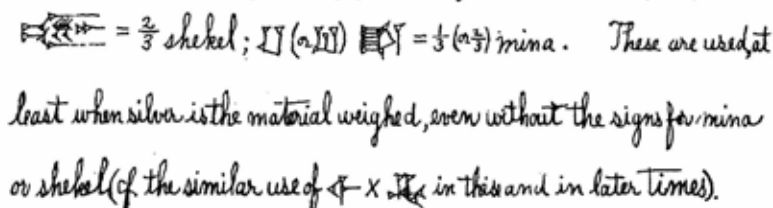 = 2/3 shekel; (or ) = 1/3 (or 2/3) mina. These are used, at
least when silver is the material weighed, even without the signs for mina
or shekel (cf. the similar use of x in this and in later times).